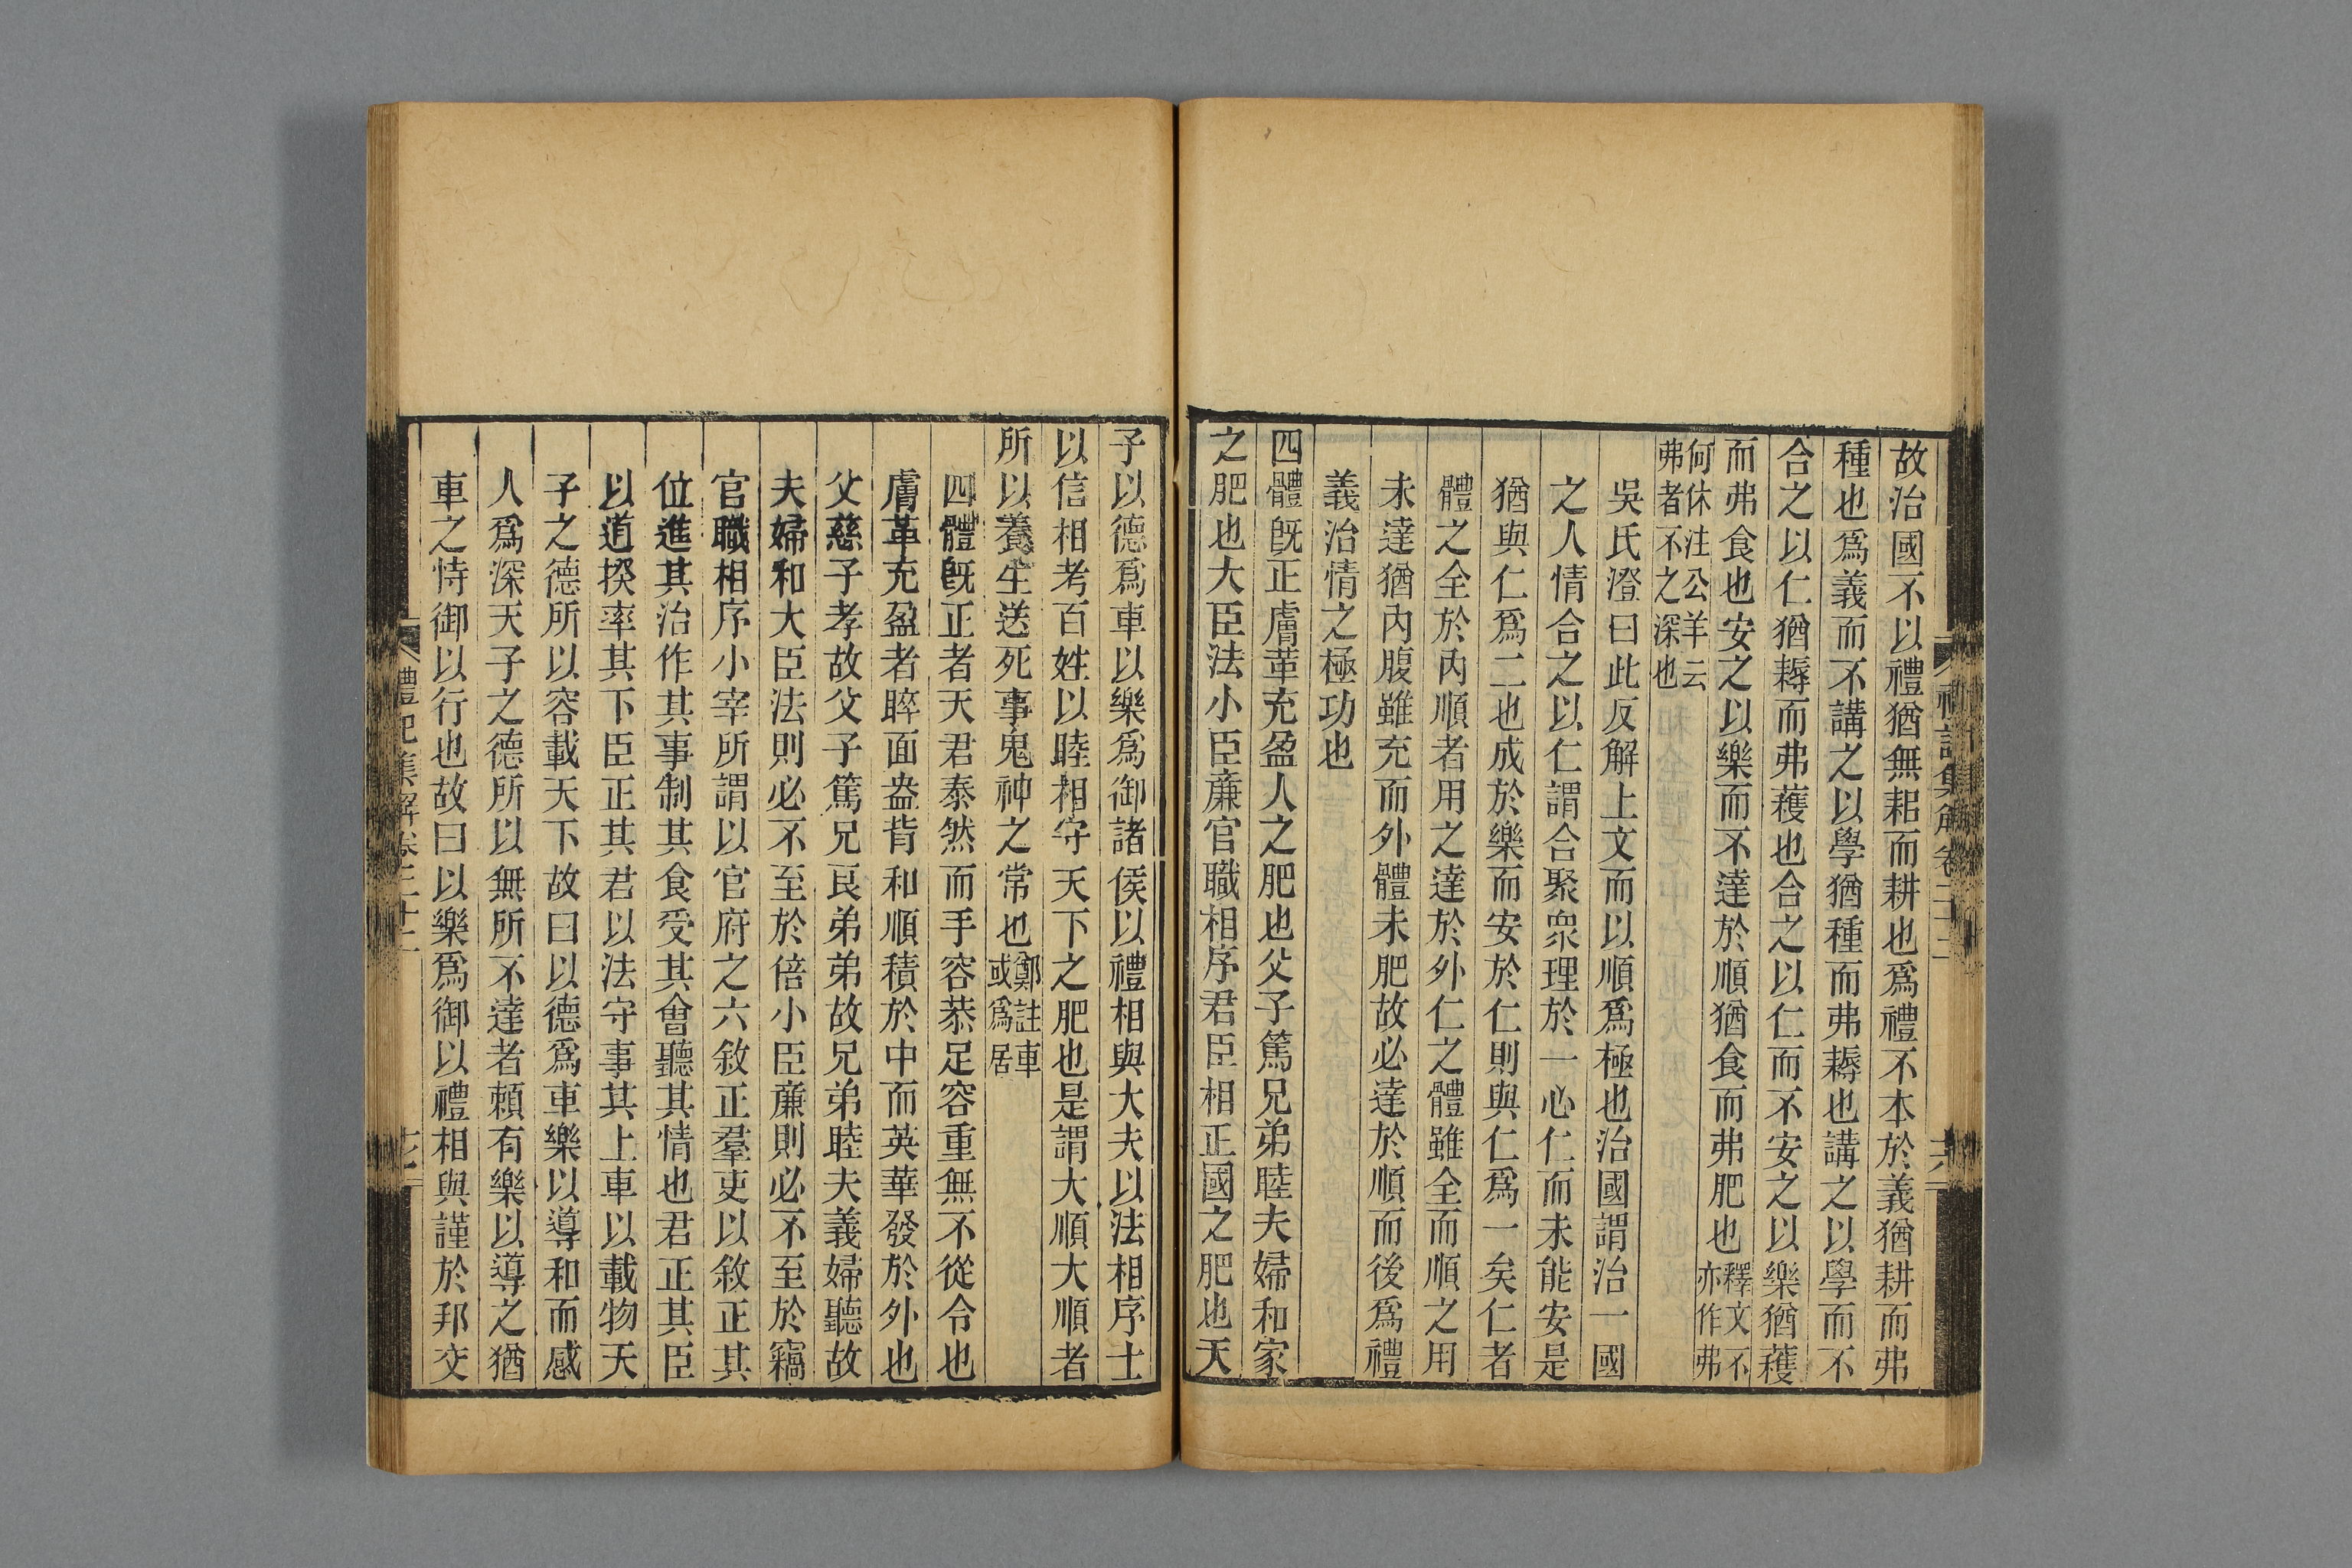 故治國不以禮猶無耜而耕也爲禮不本於義猶耕而弗
種也爲義而不講之以學猶種而弗耨也講之以學而不
合之以仁猶耨而弗穫也合之以仁而不安之以樂猶穫
而弗食也安之以樂而不達於順猶食而弗肥也釋文不
亦作弗
何休注公羊云
弗者不之深也
吳氏澄曰此反解上文而以順爲極也治國謂治一國
之人情合之以仁謂合聚衆理於一心仁而未能安是
猶與仁爲二也成於樂而安於仁則與仁爲一矣仁者
體之全於內順者用之達於外仁之體雖全而順之用
未達猶內腹雖充而外體未肥故必達於順而後爲禮
義治情之極功也
四體旣正膚革充盈人之肥也父子篤兄弟睦夫婦和家
之肥也大臣法小臣廉官職相序君臣相正國之肥也天
子以德爲車以樂爲御諸侯以禮相與大夫以法相序士
以信相考百姓以睦相守天下之肥也是謂大順大順者
所以養生送死事鬼神之常也鄭註車
或爲居
四體旣正者天君泰然而手容恭足容重無不從令也
膚革充盈者睟面盎背和順積於中而英華發於外也
父慈子孝故父子篤兄良弟弟故兄弟睦夫義婦聽故
夫婦和大臣法則必不至於倍小臣廉則必不至於竊
官職相序小宰所謂以官府之六敘正羣吏以敘正其
位進其治作其事制其食受其會聽其情也君正其臣
以道揆率其下臣正其君以法守事其上車以載物天
子之德所以容載天下故曰以德爲車樂以導和而感
人爲深天子之德所以無所不達者賴有樂以導之猶
車之恃御以行也故曰以樂爲御以禮相與謹於邦交
禮記集解卷二十二